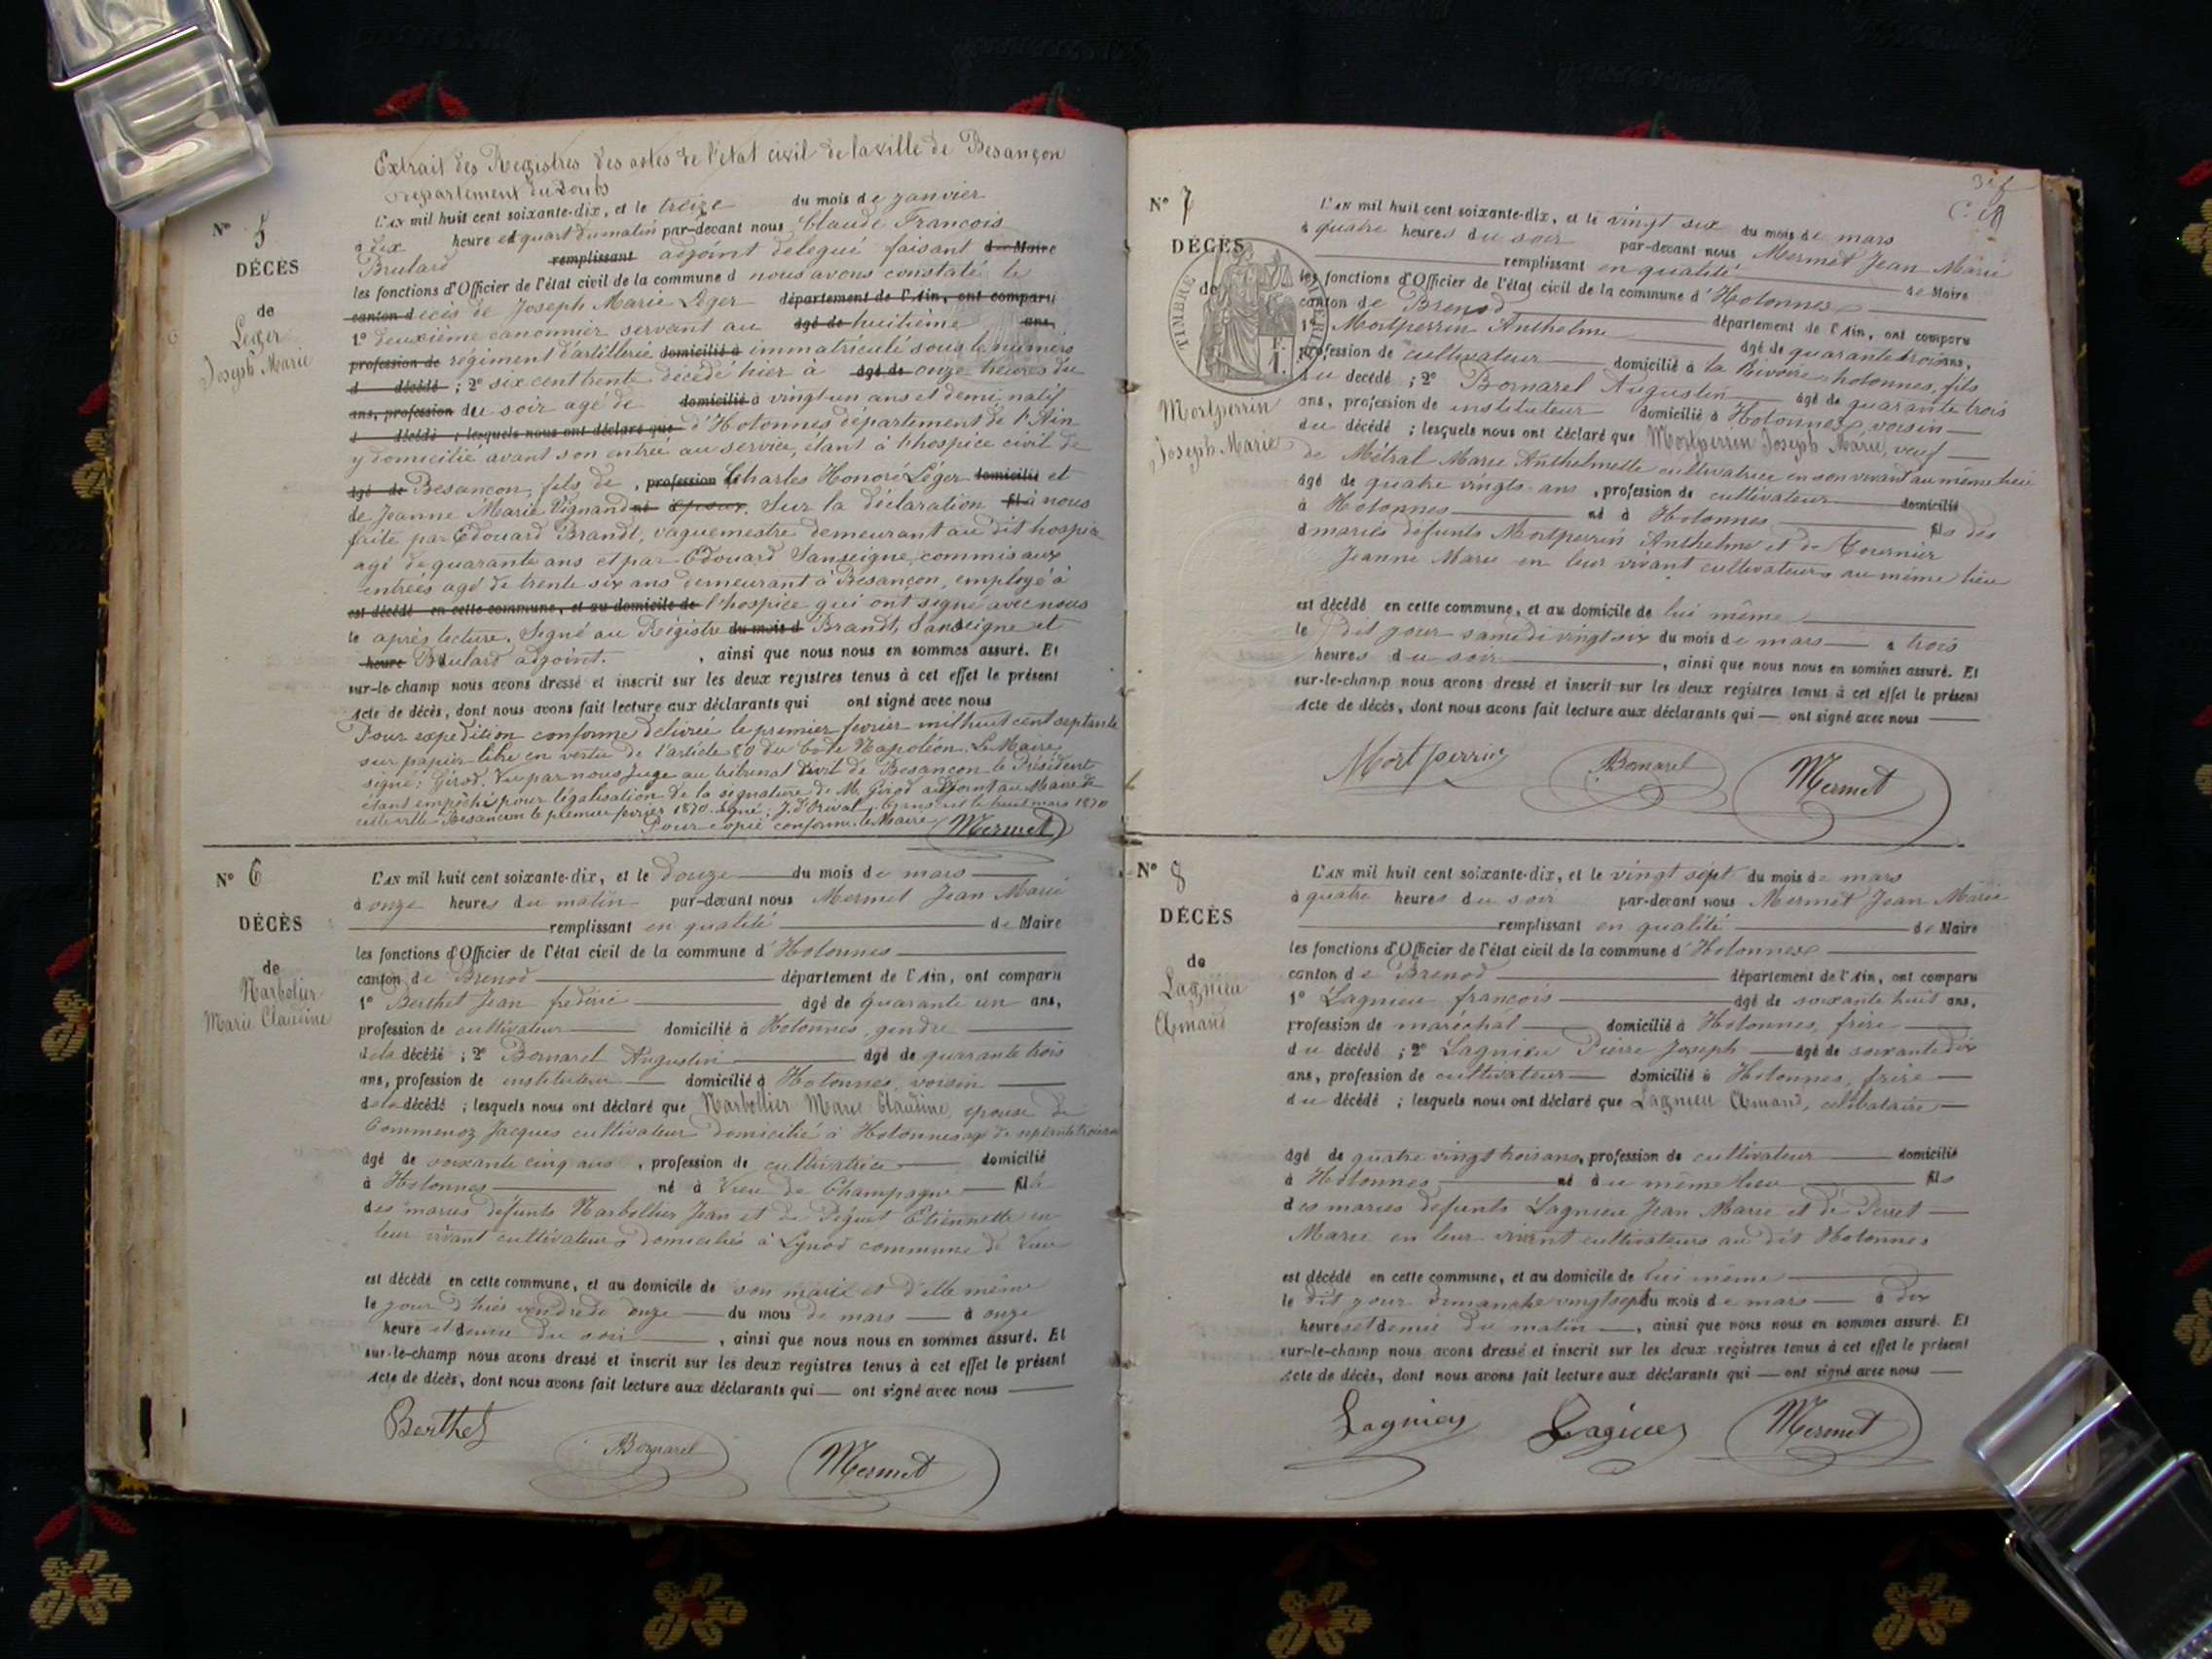 Extrait des Registres des actes de l'état civil de la ville de Besançon
département du Doubs
N° 5
L'AN mil huit cent soixante-dix, et le treize du mois de janvier
à dix heure et quart du matin par-devant nous Claude François
DÉCÈS
Brulard remplissant adjoint délégué faisant de Maire
les fonctions d'Officier de l'état civil de la commune d nous avons constaté le
de
canton décès de Joseph Marie Léger département de l'Ain, ont comparu
Leger
1° deuxième canonnier servant au âgé de huitième ans,
Joseph Marie
profession de régiment d'artillerie domicilié à immatriculé sous le numéro
d décédé ; 2° six cent trente décédé hier à âgé de onze heures du
ans, profession du soir agé de domicilié à vingt un ans et demi, natif
d décédé ; lesquels nous ont déclaré que d'Hotonnes département de l'Ain
y domicilié avant son entrée au service, étant à l'hospice civil de
âgé de Besançon, fils de , profession Charles Honoré Léger domicilié et
de Jeanne Marie Vignand né époux. Sur la déclaration fil à nous
faite par Edouard Brandt, vaguemestre demeurant au dit hospice
agé de quarante ans et par Edouard Sanseigne, commis aux
entrées agé de trente six ans demeurant à Besançon, employé à
est décédé en cette commune, et au domicile de l'hospice qui ont signé avec nous
le après lecture. Signé au Régistre du mois d Brandt, Sanseigne et
heure Brulard adjoint. , ainsi que nous nous en sommes assuré. Et
sur-le-champ nous avons dressé et inscrit sur les deux registres tenus à cet effet le présent
acte de décès, dont nous avons fait lecture aux déclarants qui ont signé avec nous
Pour expédition conforme délivrée le premier février mil huit cent septante
sur papier libre en vertu de l'article 80 du Code Napoléon. Le Maire
signé: Girod. Vu par nous Juge au tribunal Civil de Besançon le Président
étant empêché pour légalisation de la signature de M. Girod adjoint au Maire de
cette ville Besançon le premier février 1870. signé: J. d'Orival. transcrit le huit mars 1870
Pour copie conforme. le Maire Mermet
N° 6
L'AN mil huit cent soixante-dix, et le douze du mois de mars
à onze heures du matin par-devant nous Mermet Jean Marie
DÉCÈS
remplissant en qualité de Maire
les fonctions d'Officier de l'état civil de la commune d'Hotonnes
de
canton de Brenod département de l'Ain, ont comparu
Narbolier
1° Berthet Jean frédéric âgé de quarante un ans,
Marie Claudine
profession de cultivateur domicilié à Hotonnes, gendre
de la décédé ; 2° Bornarel Augustin âgé de quarante trois
ans, profession de instituteur domicilié à Hotonnes, voisin
de la décédé ; lesquels nous ont déclaré que Narbollier Marie Claudine, épouse de
Commenoz Jacques cultivateur domicilié à Hotonnes agé de septante trois ans
âgé de soixante cinq ans , profession de cultivatrice domicilié
à Hotonnes né à Vieu de Champagne fille
des mariés défunts Narbollier Jean et de Péguet Etiennette en
leur vivant cultivateurs domiciliés à Lynod commune de Vieu
est décédé en cette commune, et au domicile de son mari et d'elle même
le jour d'hier vendredi onze du mois de mars à onze
heure et demie du soir , ainsi que nous nous en sommes assuré. Et
sur-le-champ nous avons dressé et inscrit sur les deux registres tenus à cet effet le présent
acte de décès, dont nous avons fait lecture aux déclarants qui ont signé avec nous
Berthet ABornarel Mermet
N° 7
L'AN mil huit cent soixante-dix, et le vingt six du mois de mars
à quatre heures du soir par-devant nous Mermet Jean Marie
DÉCÈS
remplissant en qualité de Maire
les fonctions d'Officier de l'état civil de la commune d'Hotonnes
de
TIMBRE IMPÉRIAL
1 F.
canton de Brenod département de l'Ain, ont comparu
1° Mortperrin Anthelme âgé de quarante trois ans,
profession de cultivateur domicilié à la Rivoire, hotonnes, fils
du décédé ; 2° Bornarel Augustin âgé de quarante trois
Mortperrin
ans, profession de instituteur domicilié à Hotonnes, voisin
Joseph Marie
du décédé ; lesquels nous ont déclaré que Mortperrin Joseph Marie, veuf
de Métral Marie Anthelmette cultivatrice en son vivant au même lieu
âgé de quatre vingts ans , profession de cultivateur domicilié
à Hotonnes né à Hotonnes fils des
d mariés défunts Mortperrin Anthelme et de Tournier
Jeanne Marie en leur vivant cultivateurs au même lieu
est décédé en cette commune, et au domicile de lui même
le dit jour samedi vingt six du mois de mars à trois
heures du soir , ainsi que nous nous en sommes assuré. Et
sur-le-champ nous avons dressé et inscrit sur les deux registres tenus à cet effet le présent
acte de décès, dont nous avons fait lecture aux déclarants qui ont signé avec nous
Mortperrin ABornarel Mermet
N° 8
L'AN mil huit cent soixante-dix, et le vingt sept du mois de mars
à quatre heures du soir par-devant nous Mermet Jean Marie
DÉCÈS
remplissant en qualité de Maire
les fonctions d'Officier de l'état civil de la commune d'Hotonnes
de
canton de Brenod département de l'Ain, ont comparu
Lagnieu
1° Lagnieu françois âgé de soixante huit ans,
Amand
profession de maréchal domicilié à Hotonnes, frère
du décédé ; 2° Lagnieu Pierre Joseph âgé de soixante dix
ans, profession de cultivateur domicilié à Hotonnes, frère
du décédé ; lesquels nous ont déclaré que Lagnieu Amand, célibataire
âgé de quatre vingt trois ans, profession de cultivateur domicilié
à Hotonnes né au même lieu fils
des mariés défunts Lagnieu Jean Marie et de Perret
Marie en leur vivant cultivateurs au dit Hotonnes
est décédé en cette commune, et au domicile de lui même
le dit jour dimanche vingt sept du mois de mars à dix
heures et demie du matin , ainsi que nous nous en sommes assuré. Et
sur-le-champ nous avons dressé et inscrit sur les deux registres tenus à cet effet le présent
acte de décès, dont nous avons fait lecture aux déclarants qui ont signé avec nous
Lagnieu Lagnieu Mermet